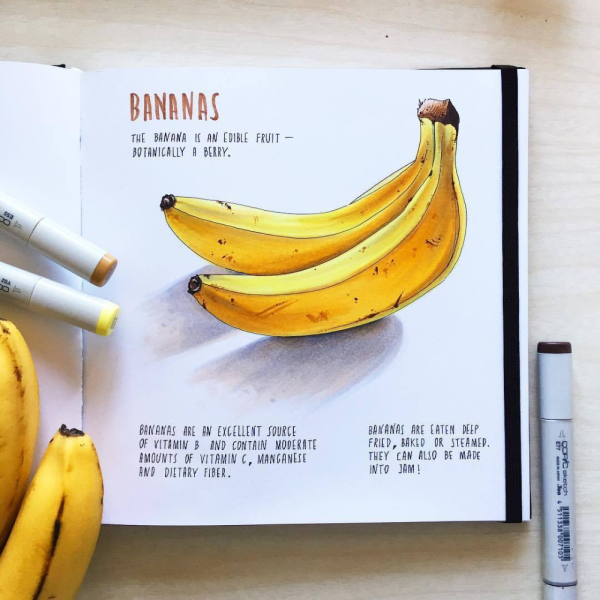 BANANAS
THE BANANA IS AN EDIBLE FRUIT –
BOTANICALLY A BERRY.
BANANAS ARE AN EXCELLENT SOURCE
OF VITAMIN B AND CONTAIN MODERATE
AMOUNTS OF VITAMIN C, MANGANESE
AND DIETARY FIBER.
BANANAS ARE EATEN DEEP
FRIED, BAKED OR STEAMED.
THEY CAN ALSO BE MADE
INTO JAM!
COPIC sketch